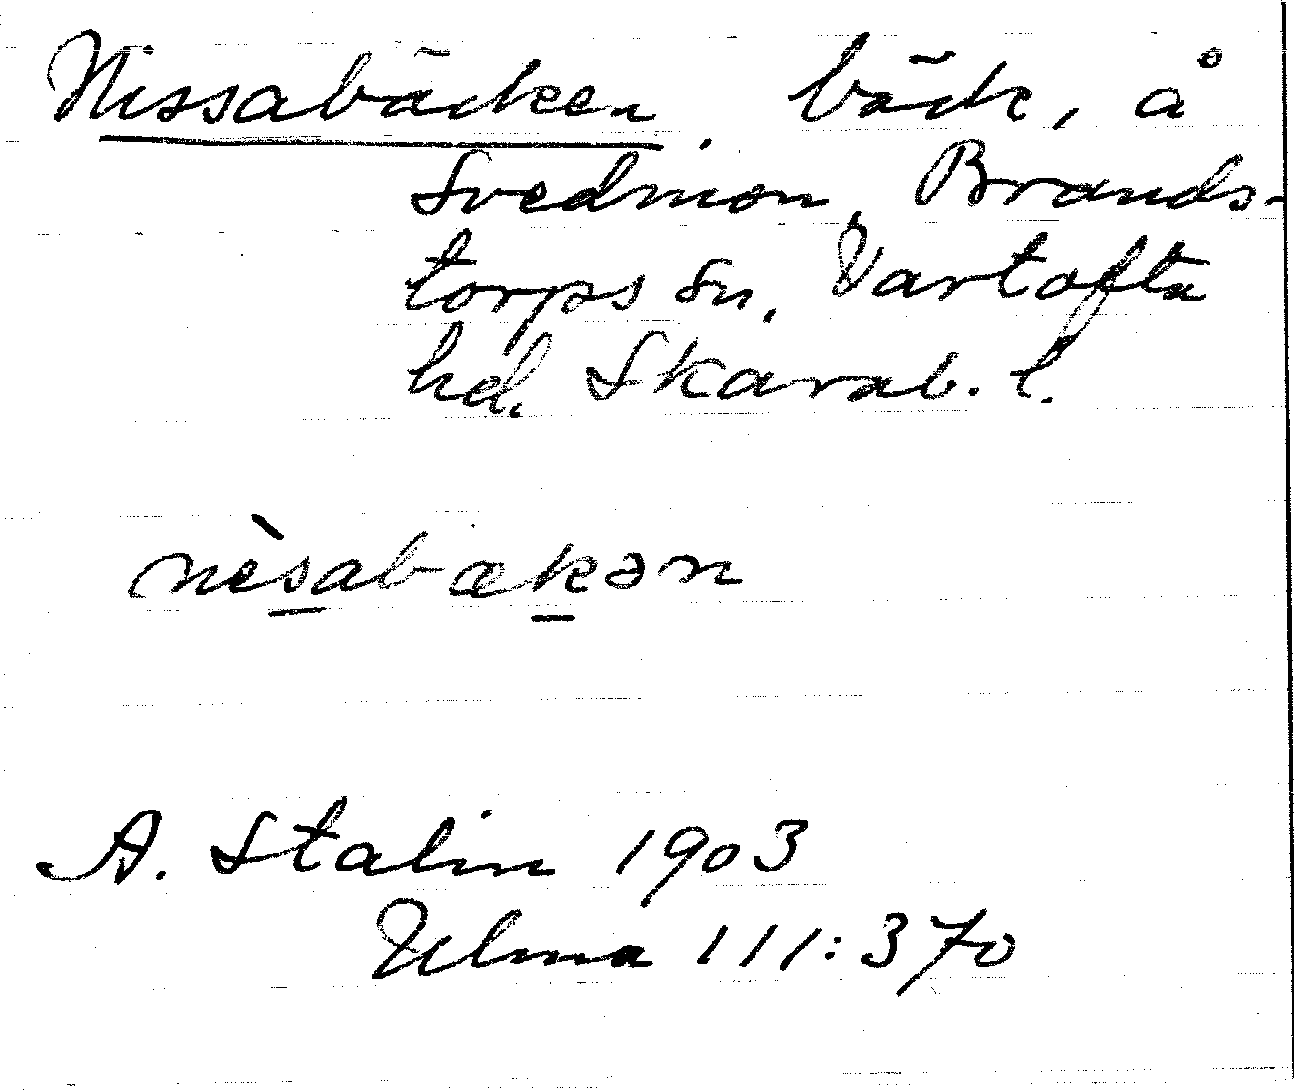 Nissabäcken. bäck, å
Svedmon, Brands-
torps sn. Vartofta
hd. Skarab. l.
nèsabækən
A. Stalin 1903
Ulma 111:370